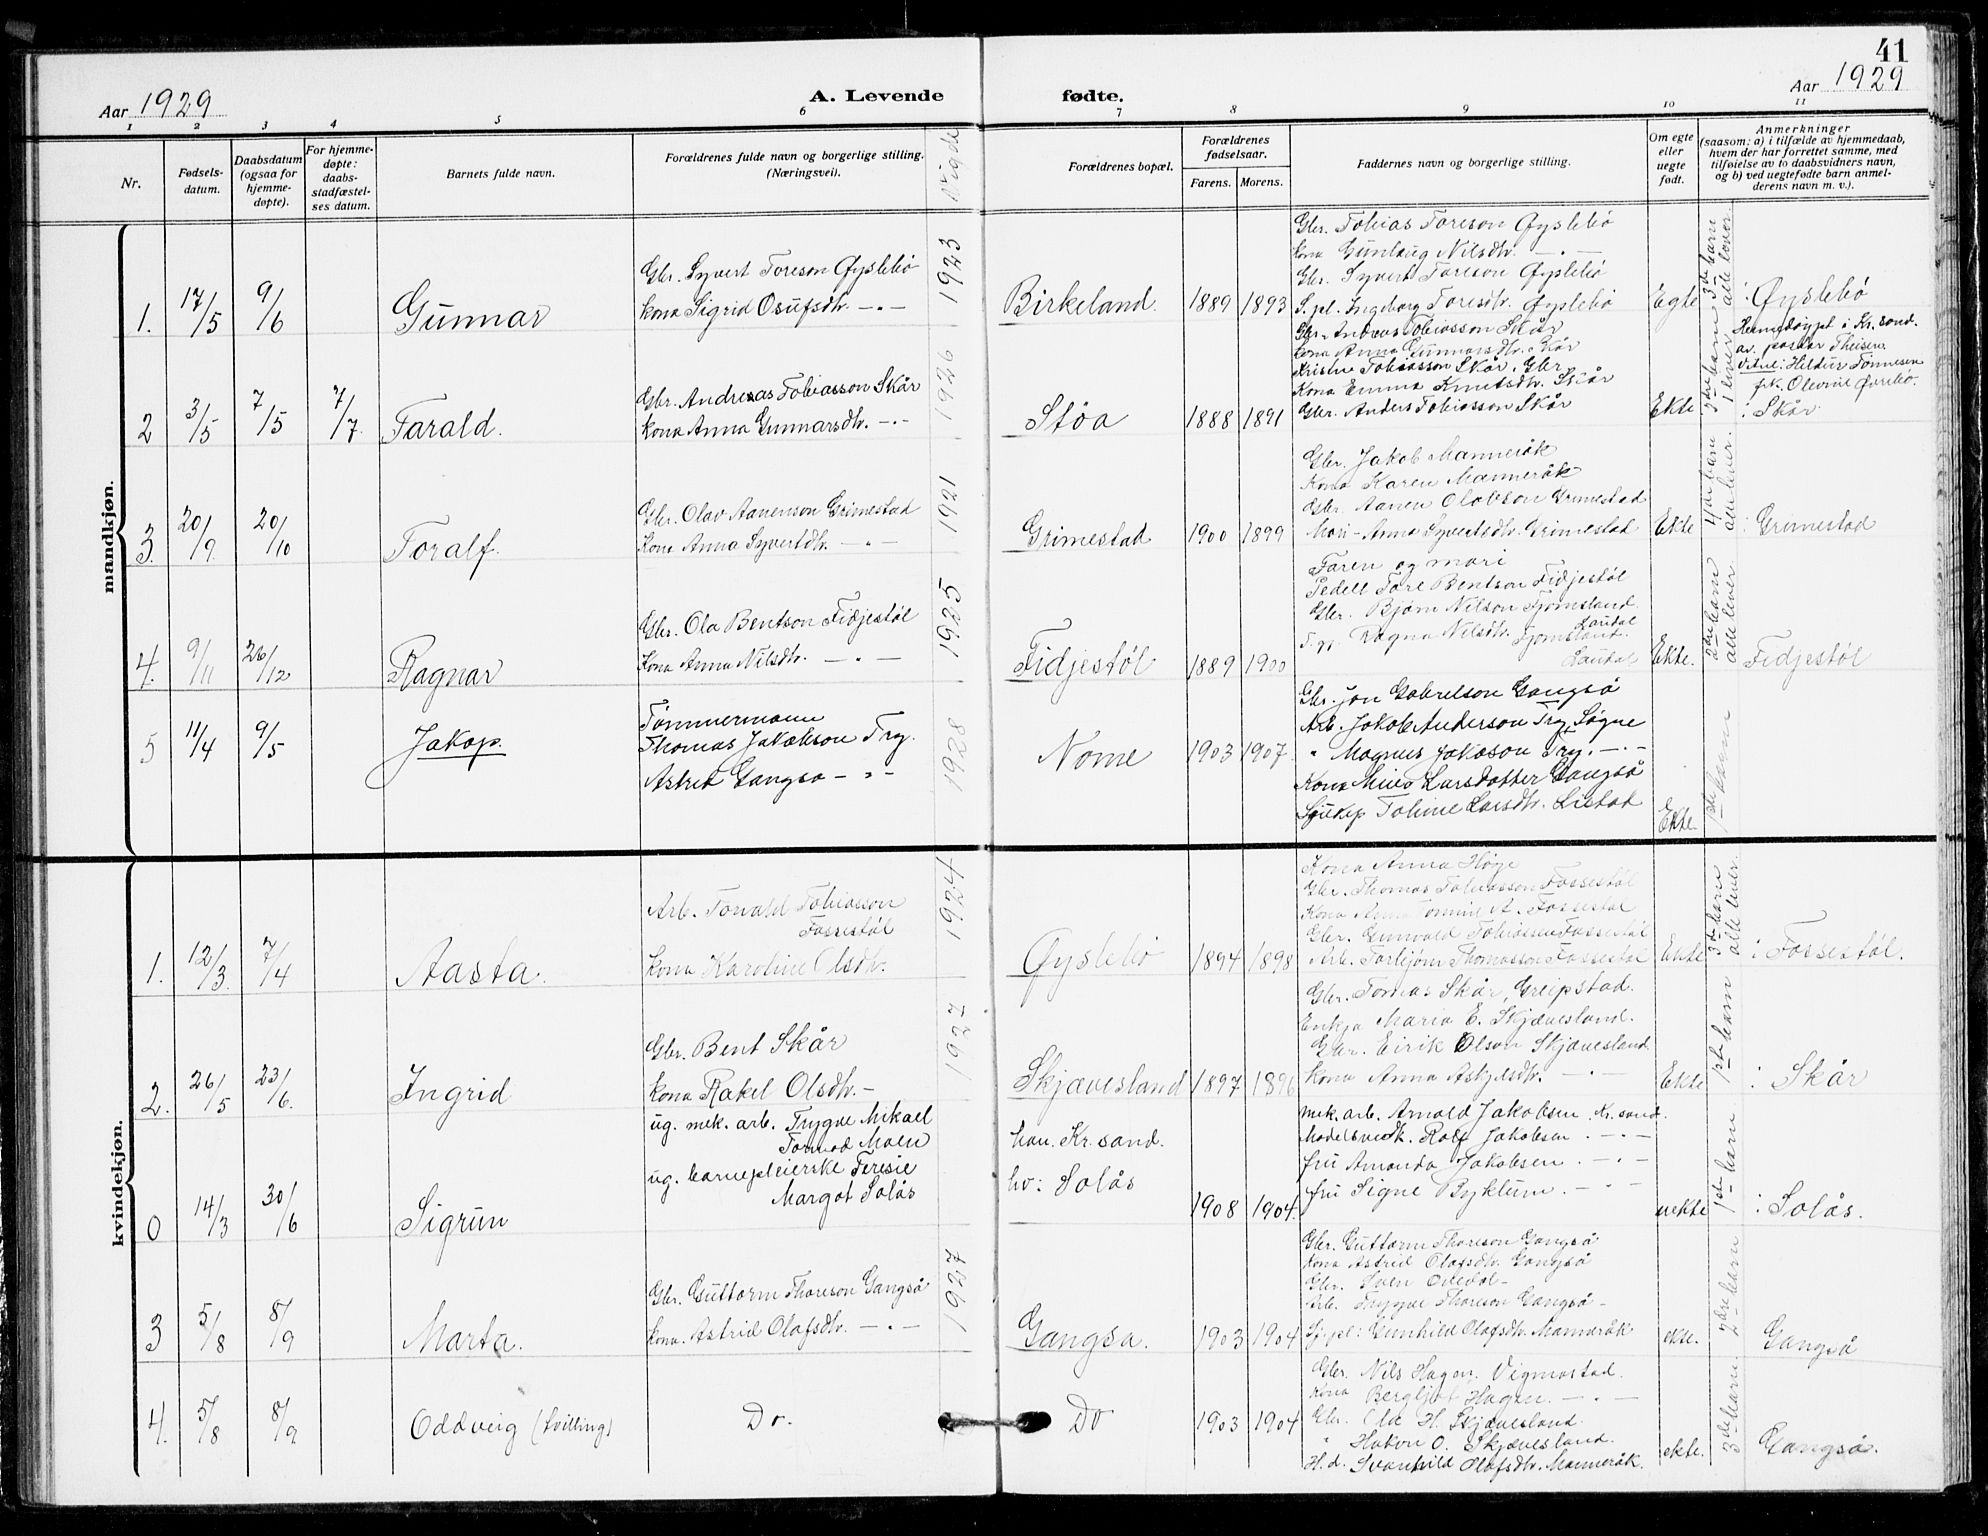 41
Aar 1929
A. Levende fødte.
Aar 1929
1 2 3 4 5 6 7 8 9 10 11
Nr.
Fødsels-
datum.
Daabsdatum
(ogsaa for
hjemme-
døpte).
For hjemme-
døpte:
daabs-
stadfæstel-
ses datum.
Barnets fulde navn.
Forældrenes fulde navn og borgerlige stilling.
(Næringsvei).
Forældrenes bopæl.
Forældrenes
fødselsaar.
Farens. Morens.
Faddernes navn og borgerlige stilling.
Om egte
eller
uegte
født.
Anmerkninger
(saasom: a) i tilfælde av hjemmedaab,
hvem der har forrettet samme, med
tilføielse av to daabsvidners navn,
og b) ved uegtefødte barn anmel-
derens navn m. v.).
mandkjøn.
1. 17/5 9/6 Gunnar
Gbr. Syvert Toreson Øyslebø
kona Sigrid Osufsdtr. -"-
1923
Birkeland. 1889 1893
Gbr. Tobias Toreson Øyslebø
kona Gunlaug Nilsdtr. -"-
Gbr. Syvert Toreson Øyslebø
S. pl. Ingeborg Toresdtr. Øyslebø
Egte
3de barn
alle lever.
: Øyslebø
2 3/5 7/5 7/7 Tarald.
Gbr. Andreas Tobiasson Skår
kona Anna Gunnarsdtr. -"-
1926
Støa 1888 1891
Gbr. Andreas Tobiasson Skår
kona Anna Gunnarsdtr. Skår
Kristen Tobiasson Skår, Gbr.
Kona Emma Knutsdtr. Skår
Gbr. Anders Tobiasson Skår
Ekte
1 lever
Hemedøypt i Kr.sand.
av pastor Theisen
Hildur Tønnesen
frk. Olevine Øvrebø.
: Skår.
3. 20/9 20/10 Toralf.
Gbr. Olav Aanenson Grimestad
Kona Anna Syvertsdtr. -"-
1921
Grimestad 1900 1899
Gbr. Jakob Manneråk
Kona Karen Manneråk
Gbr. Aanen Olavson Grimestad
Mori - Anna Syvertsdtr. Grimestad
Ekte
4de barn
alle lever.
: Grimestad
4. 9/11 26/12 Ragnar
Gbr. Ola Bentson Fidjestøl
Kona Anna Nilsdtr. -"-
1925
Fidjestøl 1889 1900
Faren og mori
Pedell Tore Bentson Fidjestøl
Gbr. Bjørn Nilson Tjomsland. Laudal
Ragna Nilsdtr. Tjomsland.
Laudal
Ekte.
2det barn
alle lever
: Fidjestøl
5 11/4 9/5 Jakop.
Tømmermann
Thomas Jakobson Try.
Astrid Gangså -"-
1928
Nome 1903 1907.
Gbr. Jon Gabrelson Gangså
Arb. Jakob Anderson Try Søgne
" Magnus Jakobson Try. -"-
Kona Larsdotter Gangså
Sjukep. Toline Larsdtr. Listad
Ekte.
1ste barn
kvindekjøn.
1. 12/3. 7/4 Aasta.
Arb. Torvald Tobiasson
Fossestøl
kona Karoline Olsdtr.
1924
Øyslebø 1894 1898
Kona Anna Høye
Gbr. Thomas Tobiasson Fossestøl
Kona Anna A. Fossestøl
Gbr. Gunvald Tobiassen Fossestøl
Arb. Torbjørn Thomasson Fossestøl
Ekte
3de barn
alle lever.
: Fossestøl.
2. 26/5 23/6. Ingrid
Gbr. Bent Skår
kona Rakel Olsdtr. -
1927
Skjævesland 1897 1896
Gbr. Tomas Skår, Greipstad.
Enkja Maria E. Skjævesland.
Gbr. Eirik Olson Skjævesland
kona Anna Askjelsdtr. -"-
Ekte
1ste barn
: Skår
0 14/3 30/6 Sigrun
ug. mek. arb. Trygve Mikael
Tormod Moen
ug. barnepleierske Teresie
Margot Solås
han. Kr.sand.
ho: Solås
1908 1904.
mek. arb. Arnold Jakobsen Kr.sand.
Modelsnedk. Rolf Jakobsen -"-
fru Amanda Jakobsen. -"-
fru Signe Byklum. -"-
uekte
1ste barn
: Solås.
3 5/8 8/9 Marta.
Gbr. Guttorm Thoreson Gangså
kona. Astrid Olafsdtr. -"-
1927
Gangså. 1903 1904
Gbr. Guttorm Thoreson Gangså
kona Astrid Olafsdtr. Gangså
Gbr. Sven -
Arb. Trygve Thoreson Gangså -
Sj.pl: Gunhild Olafsdtr. Mannråk
ekte.
2det barn
Gangså
4. 5/8 8/9 Oddveig (tvilling)
Do.
Do
1903 1904
Gbr. Nils Hagen. Vigmostad
kona Bergljot Hagen. -"-
Gbr. Ole H. Skjævesland.
" Håkon O. Skjævesland.
H.d. Svanhild Olafsdtr. Mannråk.
ekte.
3de barn
Gangså.